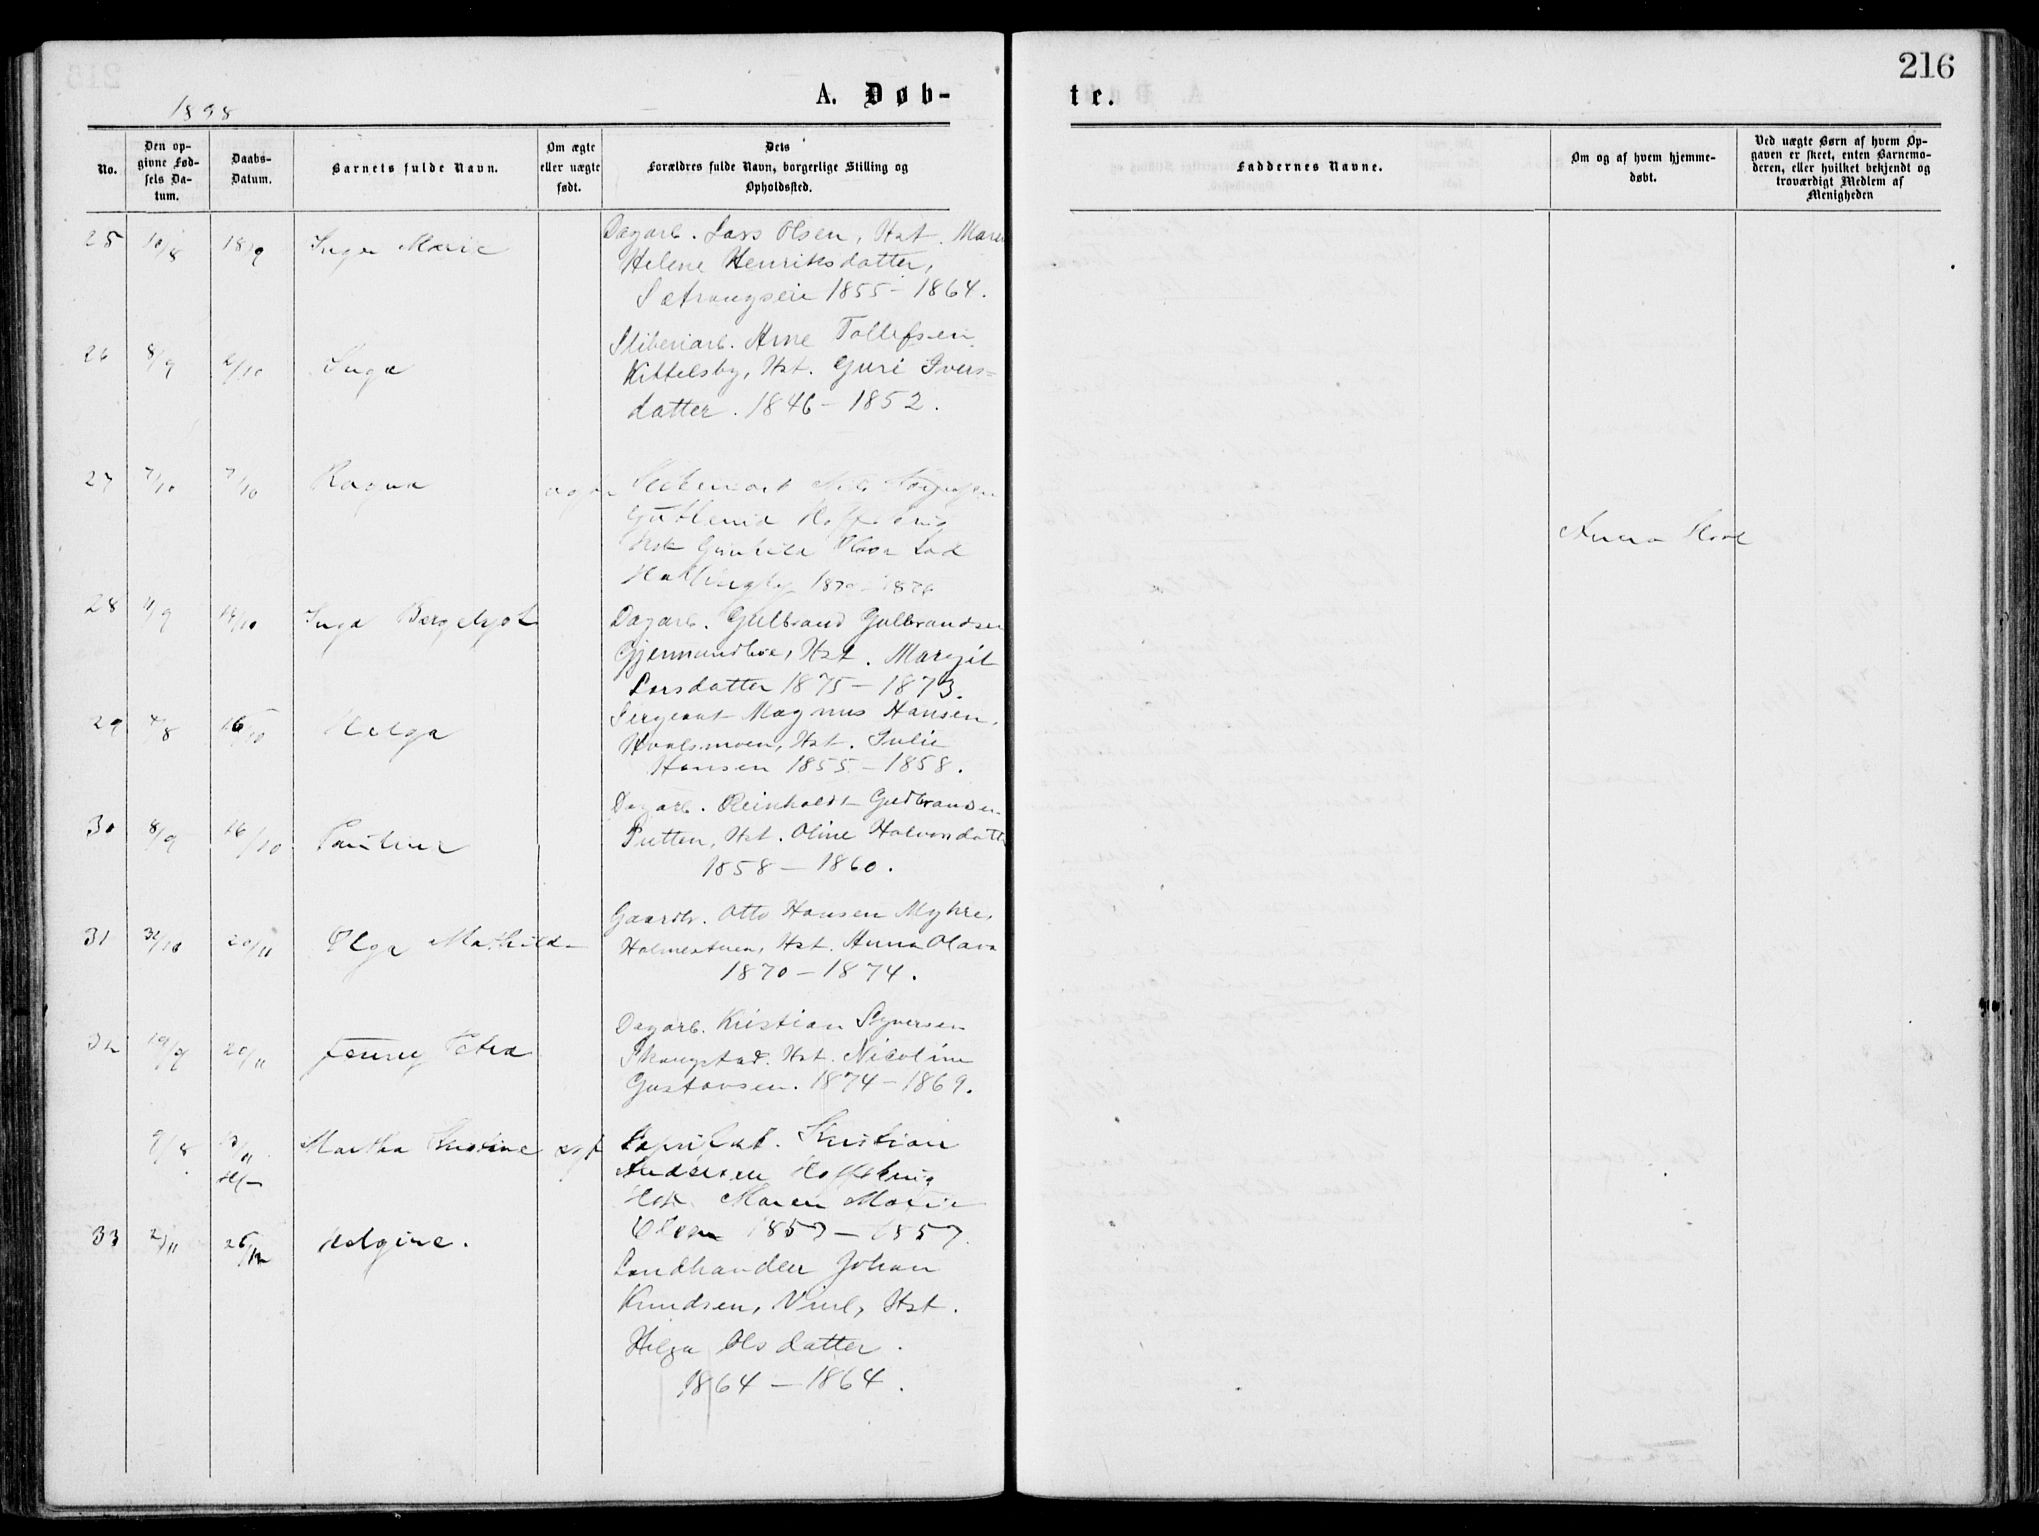 216
1898
A. Døb-
te.
No.
Den op-
givne Fød-
sels Da-
tum.
Daabs-
Datum.
Barnets fulde Navn.
Om ægte
eller uægte
født.
Dets
Forældres fulde Navn, borgerlige Stilling og
Opholdssted.
Faddernes Navne.
Om og af hvem hjemme-
døbt.
Ved uægte Børn af hvem Op-
gaven er skeet, enten Barnemo-
deren, eller hvilket bekjendt og
troværdigt Medlem af
Menigheden
25 10/8 18/9 Inga Marie
Dagarb. Lars Olsen, Hst. Maren
Helene Henriksdatter,
Sætrangseie 1855 - 1864.
26 8/9 2/10 Inga
Sliberiarb. Arne Tollefsen
Kittelsby, Hst. Guri Ivers=
datter. 1846 - 1852.
27 7/10 7/10 Ragna
Hst Gunhild
Hallingby
Anna Hval
28 11/9 Inga Bergeljot
Dagarb. Gulbrand Gulbrandsen
Gjermundboe, Hst. Margit
Larsdatter 1875 - 1873.
29 4/8 16/10 Helga
Sergeant Magnus Hansen,
Hvalsmoen, Hst. Julie
Hansen 1855 - 1858.
30 8/9 16/10 Pauline
Dagarb. Reinholdt Gudbrandsen
Putten, Hst. Oline Halvorsdatter
1858 - 1860.
31 20/11 Olga Mathilde
Gaardb. Otto Hansen Myhre,
Hst. Anna Olava
1870 - 1874.
32 19/9 20/11 Jenny Petra
Dagarb. Kristian Syversen
Skaugstad. Hst. Nicoline
Gustavsen. 1874 - 1869.
9/8 13/11 Martha Kristine
Kristian
Andersen Hoffsbrug
Hst. Maren Marie
Olsen 1857 - 1857.
33 2/11 26/12 Helgine.
Landhandler Johan
Knudsen, Viul, Hst.
Helga Olsdatter.
1864 - 1864.